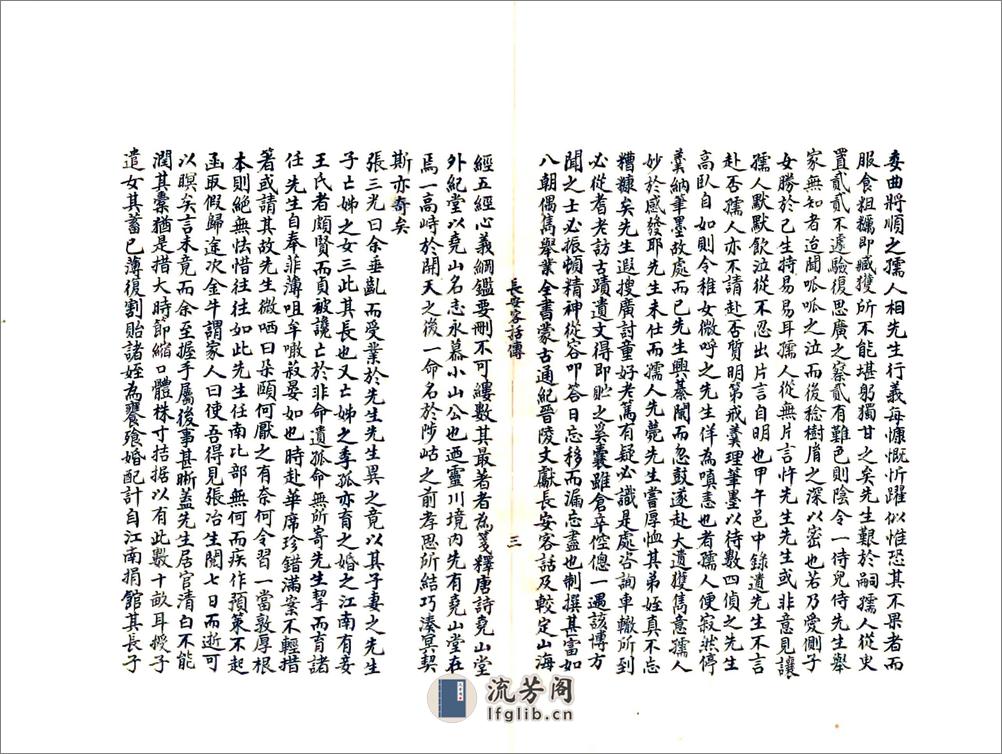 委曲將順之孺人相先生行義每慷慨忻躍似惟恐其不果者而
服食粗糲即臧獲所不能堪躬獨甘之矣先生艱於嗣孺人從臾
置貳貳不遽驗復思廣之察貳有難色則陰令一侍兒侍先生舉
家無知者迨聞呱呱之泣而後稔樹眉之深以密也若乃愛側子
女勝於己生特易易耳孺人從無片言忤先生先生或非意見讓
孺人默默飲泣從不忍出片言自明也甲午邑中錄遺先生不言
赴否孺人亦不請赴否質明第戒羹理筆墨以待數四偵之先生
高臥自如則令稚女微呼之先生佯為嗔恚也者孺人便寂然停
羹納筆墨故處而已先生興綦闌而忽鼓遂赴大遺獲雋意孺人
妙於感發耶先生未仕而孺人先薨先生嘗厚恤其弟姪真不忘
糟糠矣先生遐搜廣討童好老篤有疑必識是處咨詢車轍所到
必從耆老訪古蹟遺文得即貯之奚囊雖倉卒倥傯一遇該博方
聞之士必振頓精神從容叩答日忘移而漏忘盡也制撰甚富如
八朝偶雋舉業全書蒙古通紀晉陵文獻長安客話及較定山海
長安客話傳
三
經五經心義綱鑑要刪不可縷數其最著者為箋釋唐詩堯山堂
外紀堂以堯山名志永慕小山公也迺靈川境內先有堯山堂在
焉一高峙於開天之後一命名於陟岵之前孝思所結巧湊冥契
斯亦奇矣
張三光曰余垂亂而受業於先生先生異之竟以其子妻之先生
子亡姊之女三此其長也又亡姊之季孤亦育之婚之江南有妾
王氏者頗賢而貢被讒亡於非命遺孤命無所寄先生挈而育諸
任先生自奉菲薄咀牟噉菽晏如也時赴華席珍錯滿案不輕措
著或請其故先生微哂曰朵頤何厭之有奈何令習一當敦厚根
本則絕無怯惜往往如此先生任南比部無何而疾作預策不起
亟取假歸途次金牛謂家人曰使吾得見張冶生閱七日而逝可
以瞑矣言未竟而余至握手屬後事甚晰蓋先生居官清白不能
潤其橐猶是措大時節縮口體株寸拮据以有此數十畝耳授子
遣女其蓄已薄復割貽諸姪為饔飧婚配計自江南捐館其長子
流芳阁
lfglib.cn